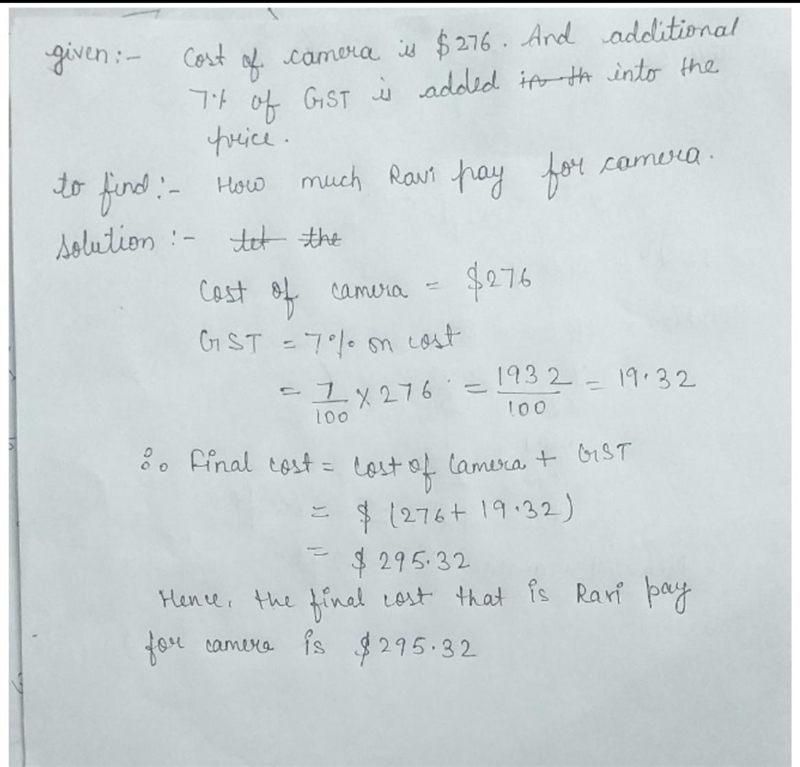 given:- Cost of camera is $276. And additional
7% of GST is added in th into the
price.
to find:- How much Ravi pay for camera.
Solution:- let the
Cost of camera = $276
GST = 7% on cost
= 7/100 × 276 = 1932/100 = 19.32
∴ Final cost = Cost of Camera + GST
= $ (276 + 19.32)
= $ 295.32
Hence, the final cost that is Ravi pay
for camera is $295.32